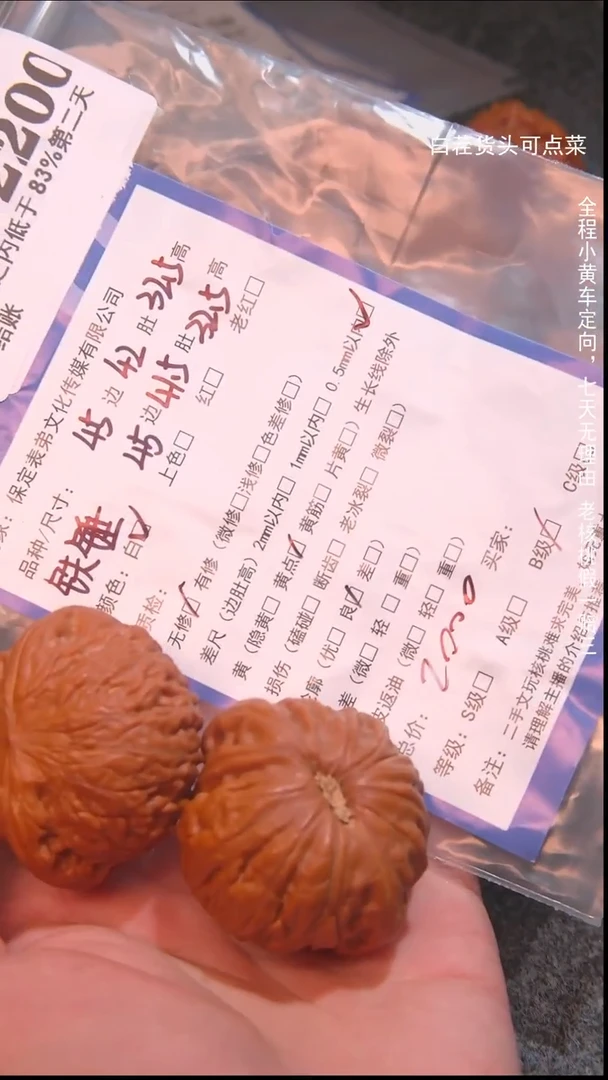 2200
之内低于83%第二天
结账
白在货头可点菜
全程小黄车定向，七天无理由 老核桃
保定表弟文化传媒有限公司
品种/尺寸： 45 边 42 肚 32.5 高
铁锤 45 边 41.5 肚 32.5 高
颜色：白□ 上色□ 红□ 老红□
质检：
无修□ 有修（微修□浅修□色差修□）
差尺（边肚高）2mm以内□ 1mm以内□ 0.5mm以内□
黄（隐黄□ 黄点□ 黄筋□ 片黄□）生长线除外
损伤（磕碰□ 断齿□ 老冰裂□ 微裂□）
轮廓（优□ 良□ 差□）
差（微□ 轻□ 重□）
皮返油（微□ 轻□ 重□）
总价： 2000 买家：
等级：S级□ A级□ B级□ C级□
备注：二手文玩核桃难求完美
请理解主播的介绍